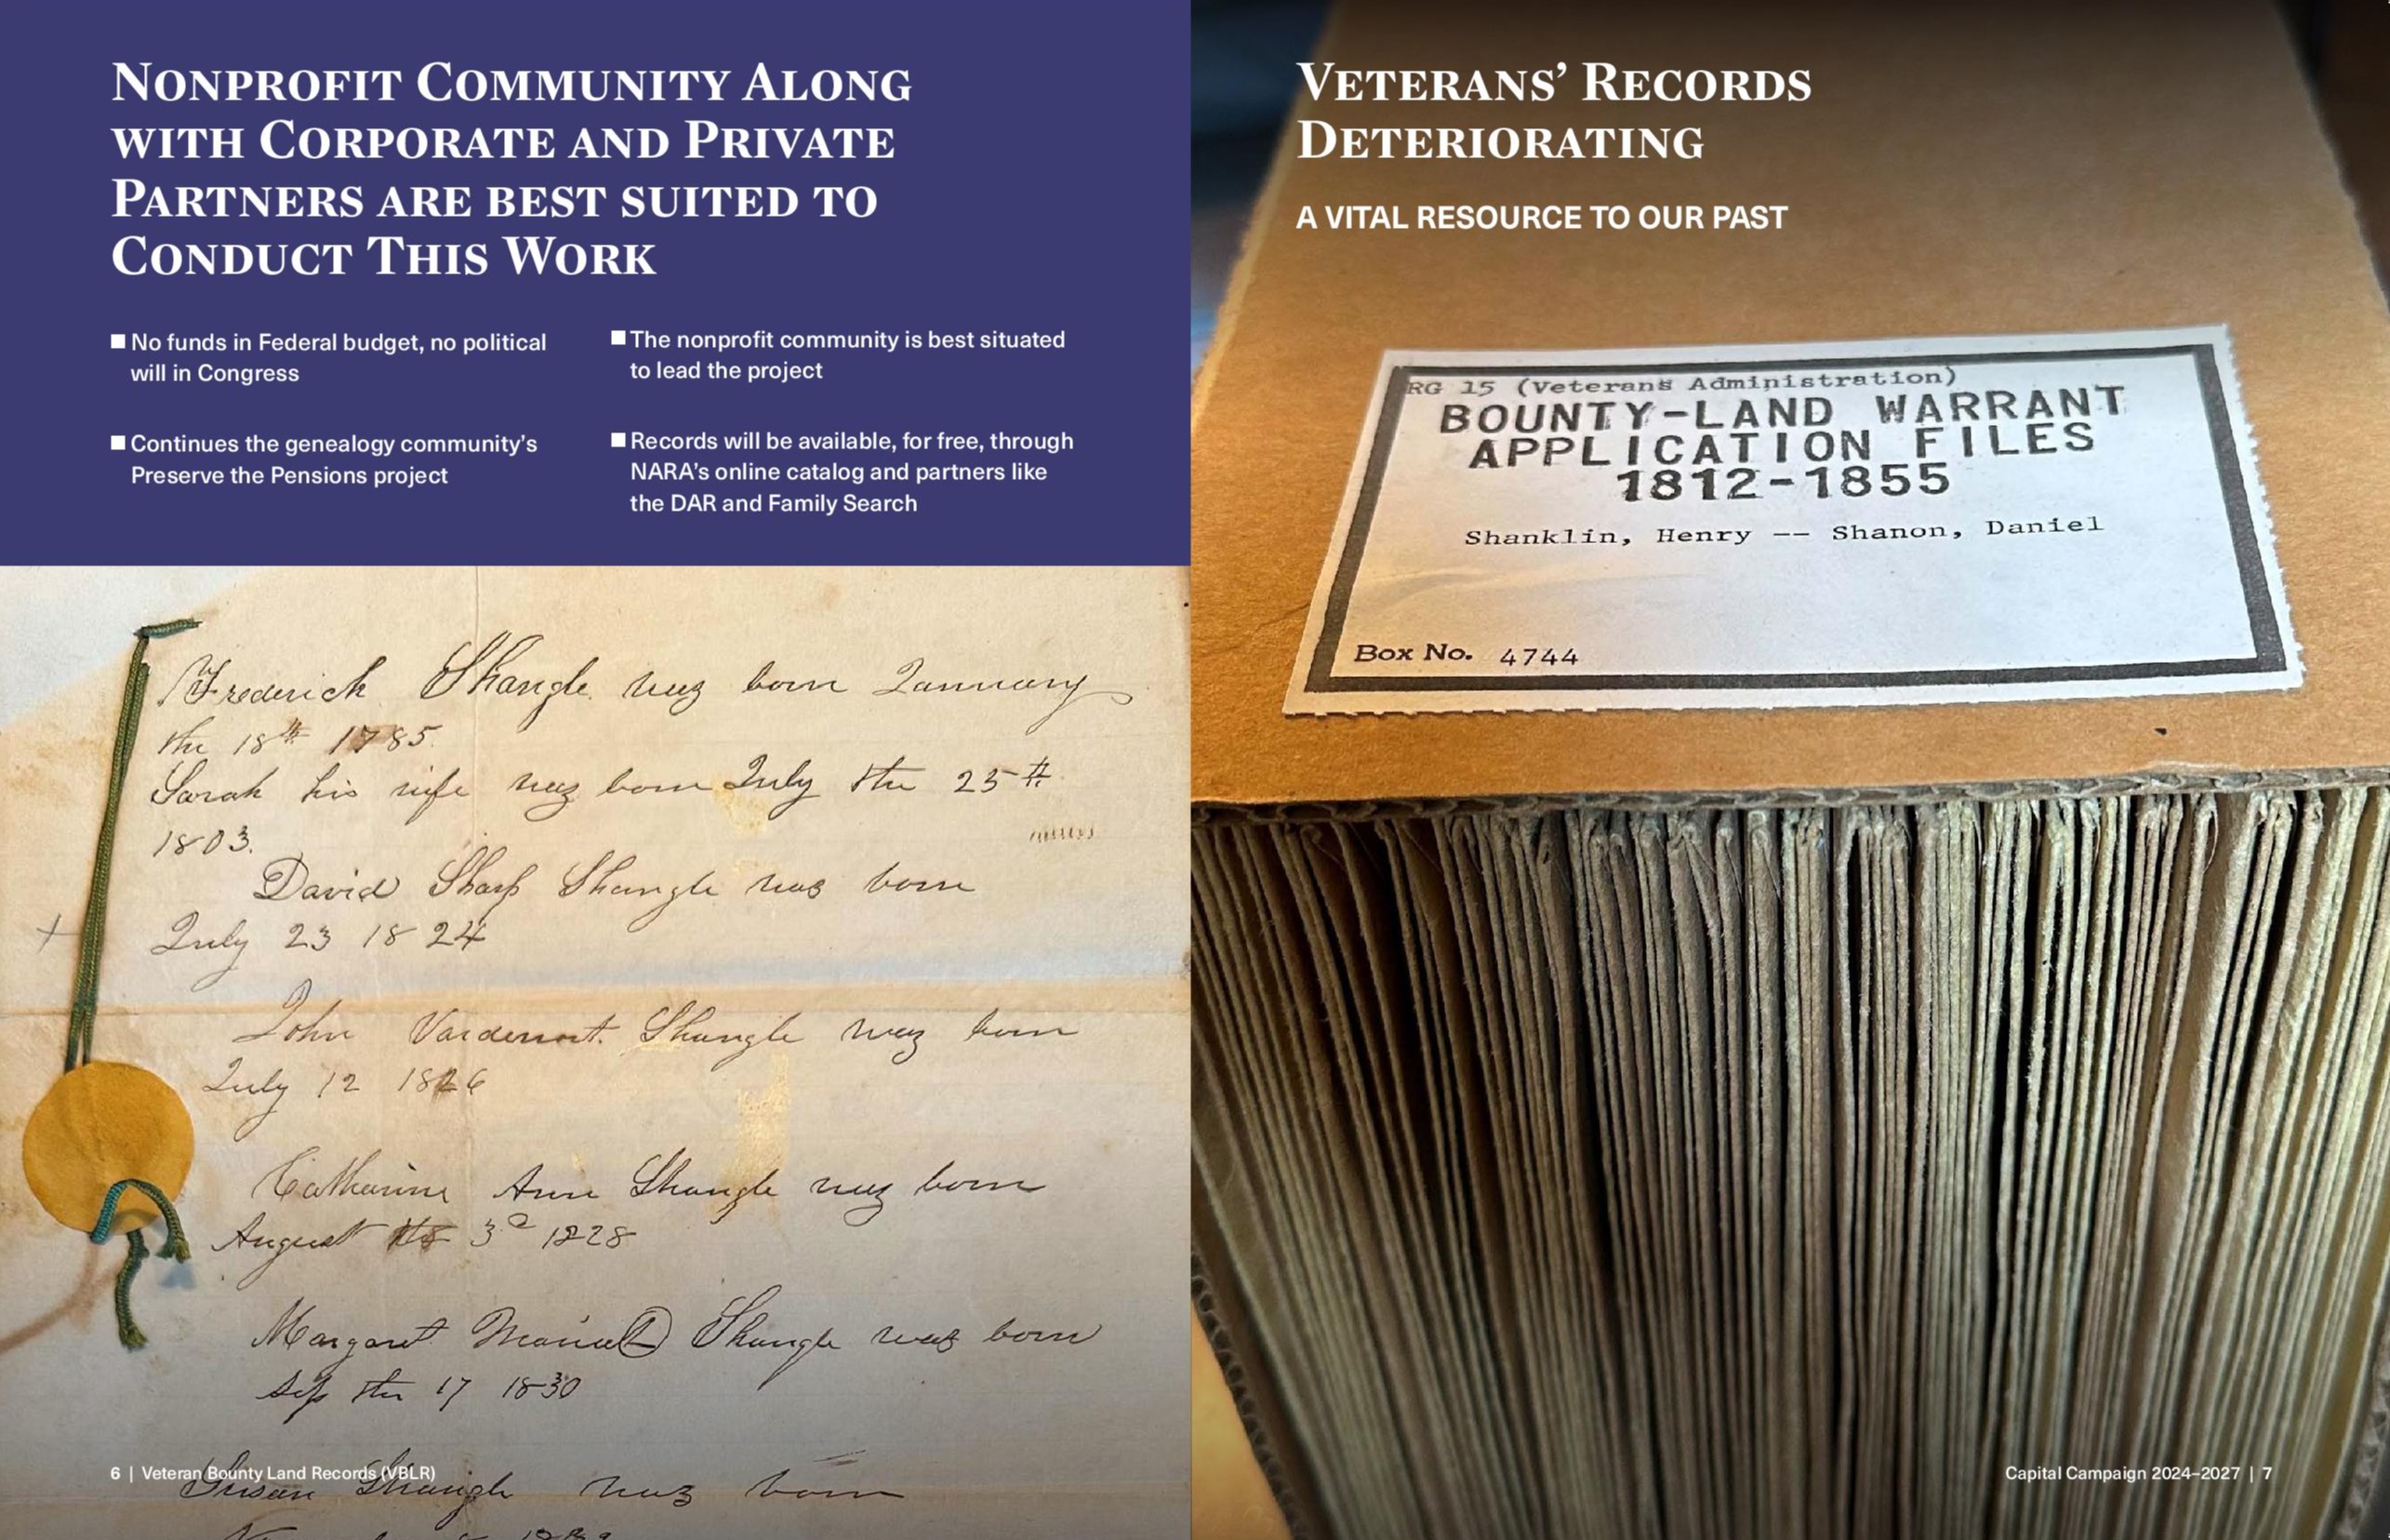 Nonprofit Community Along
with Corporate and Private
Partners are best suited to
Conduct This Work
■ No funds in Federal budget, no political
will in Congress
■ Continues the genealogy community's
Preserve the Pensions project
■ The nonprofit community is best situated
to lead the project
■ Records will be available, for free, through
NARA's online catalog and partners like
the DAR and Family Search
Frederick Shangle was born January
the 18th 1785
Sarah his wife was born July the 25th
1803.
David Sharp Shangle was born
July 23 1824
John Shangle was born
July 12 1826
Catharine Ann Shangle was born
August 3d 1828
Margaret Shangle was born
Sep the 17 1830
Susan Shangle was born
6 | Veteran Bounty Land Records (VBLR)
Veterans’ Records
Deteriorating
A VITAL RESOURCE TO OUR PAST
RG 15 (Veterans Administration)
BOUNTY-LAND WARRANT
APPLICATION FILES
1812-1855
Shanklin, Henry -- Shanon, Daniel
Box No. 4744
Capital Campaign 2024–2027 | 7